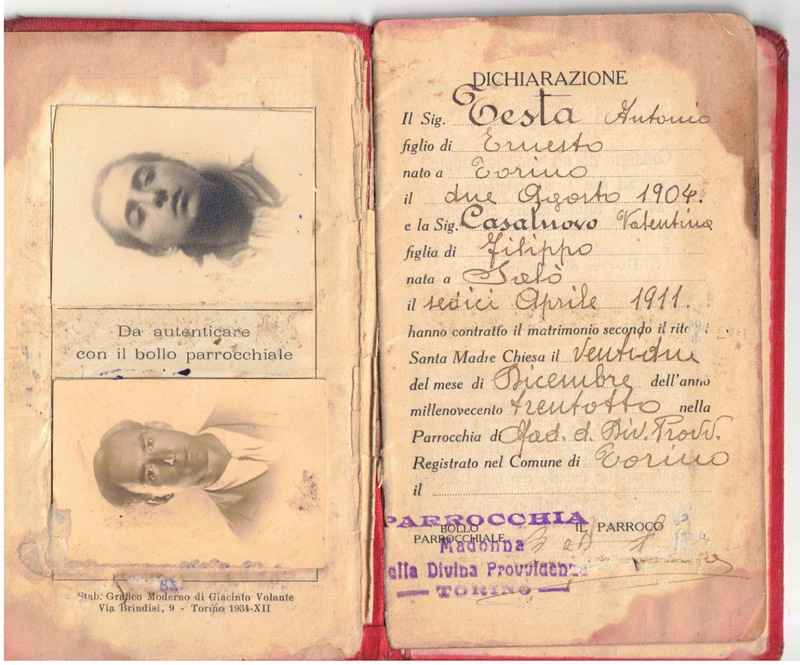 Da autenticare
con il bollo parrocchiale
Stab. Grafico Moderno di Giacinto Volante
Via Brindisi, 9 - Torino 1934-XII
DICHIARAZIONE
Il Sig. Testa Antonio
figlio di Ernesto
nato a Torino
il due Agosto 1904.
e la Sig. Casalnuovo Valentina
figlia di Filippo
nata a Salò
il sedici Aprile 1911.
hanno contratto il matrimonio secondo il rito
Santa Madre Chiesa il Ventidue
del mese di Dicembre dell'anno
millenovecento trentotto nella
Parrocchia di Mad. d. Div. Provv.
Registrato nel Comune di Torino
il
BOLLO PARROCCHIALE
IL PARROCO
PARROCCHIA
Madonna
della Divina Provvidenza
TORINO